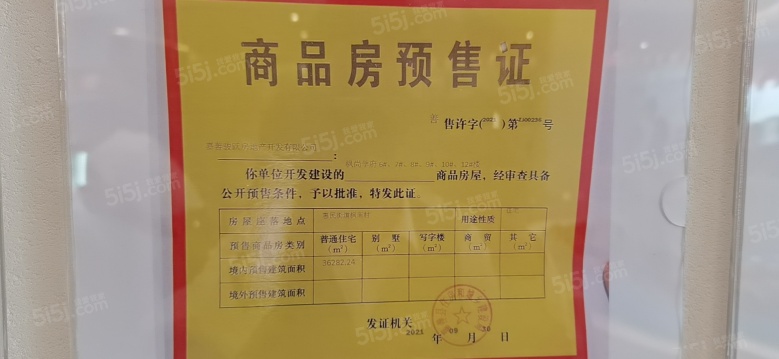 商品房预售证
售许字(2021)第 号
:
你单位开发建设的 商品房屋，经审查具备
公开预售条件，予以批准，特发此证。
房屋座落地点 用途性质 住宅
预售商品房类别 普通住宅(m²) 别墅(m²) 写字楼(m²) 商贸(m²) 其它(m²)
境内预售建筑面积 36282.24
境外预售建筑面积
发证机关
2021 年 09 月 30 日
5i5j.com 我爱我家